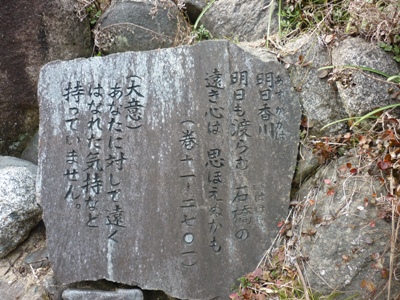 明日香川
明日も渡らむ 石橋の
遠き心は 思ほえぬかも
(巻十一―二七〇一)
(大意)
あなたに対して遠く
はなれた気持など
持っていません。